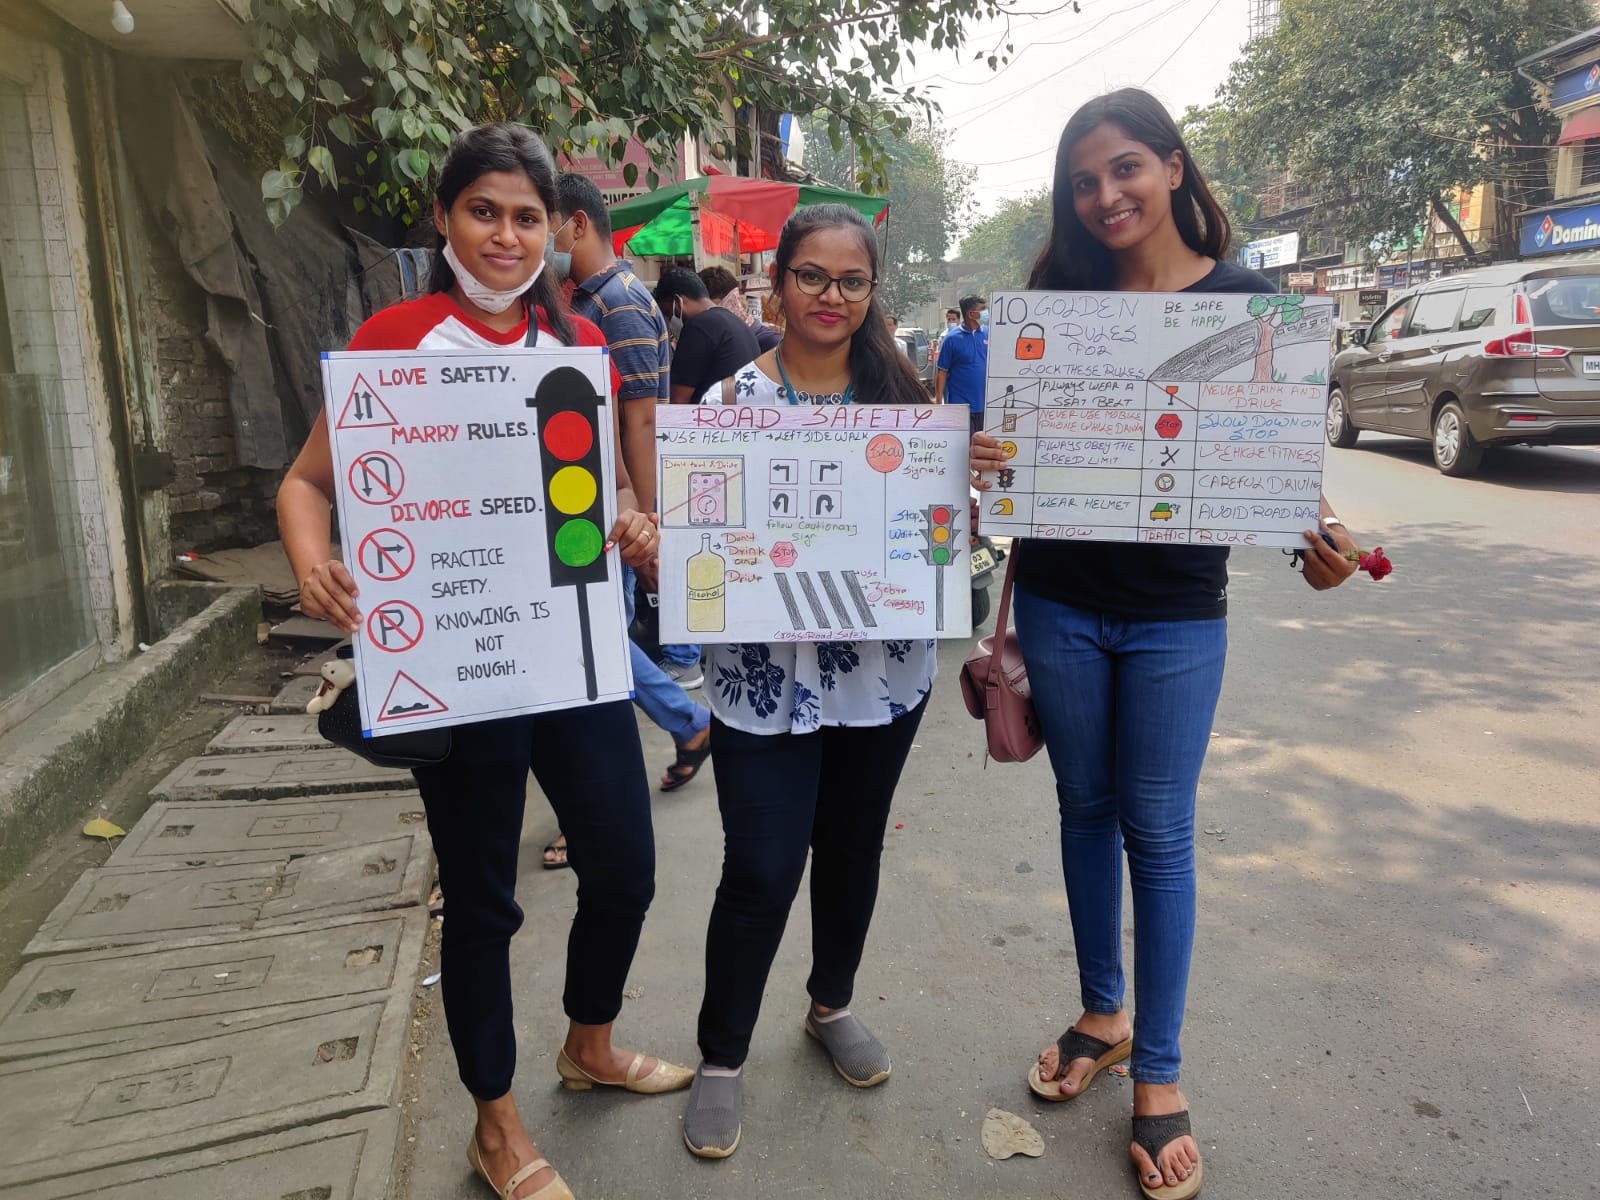 LOVE SAFETY.
MARRY RULES.
DIVORCE SPEED.
PRACTICE
SAFETY.
KNOWING IS
NOT
ENOUGH.
ROAD SAFETY
USE HELMET → LEFT SIDE WALK
Don't text & Drive
Follow
Traffic
Signals
Follow Cautionary
Sign
Stop
Wait
Go
Don't
Drink
and
Drive
STOP
Alcohol
USE
Zebra
Crossing
Cross Road Safety
10 GOLDEN
RULES
FOR
LOCK THESE RULES
BE SAFE
BE HAPPY
ALWAYS WEAR A
SEAT BELT
NEVER DRINK AND
DRIVE
NEVER USE MOBILE
PHONE WHILE DRIVIN
STOP
SLOW DOWN ON
STOP
ALWAYS OBEY THE
SPEED LIMIT
VEHICLE FITNESS
CAREFUL DRIVING
WEAR HELMET
AVOID ROAD RAGE
FOLLOW TRAFFIC RULE
Domino
MH